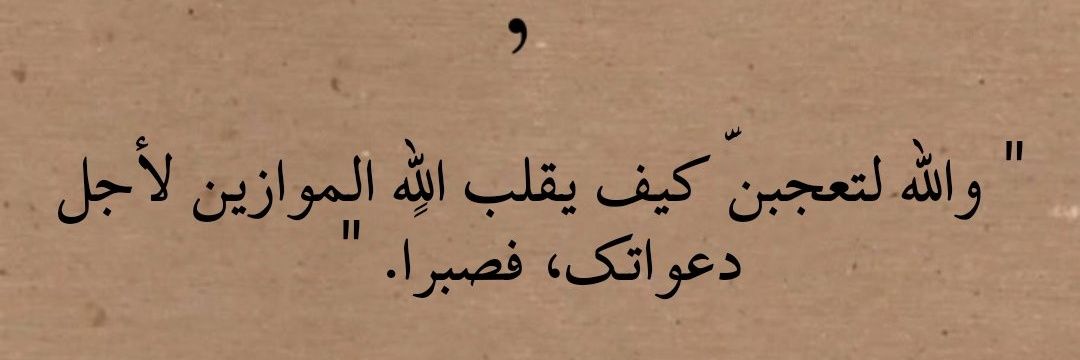 ,
" والله لتعجبنّ كيف يقلب اللهٍ الموازين لأجل
دعواتك، فصبرا. "